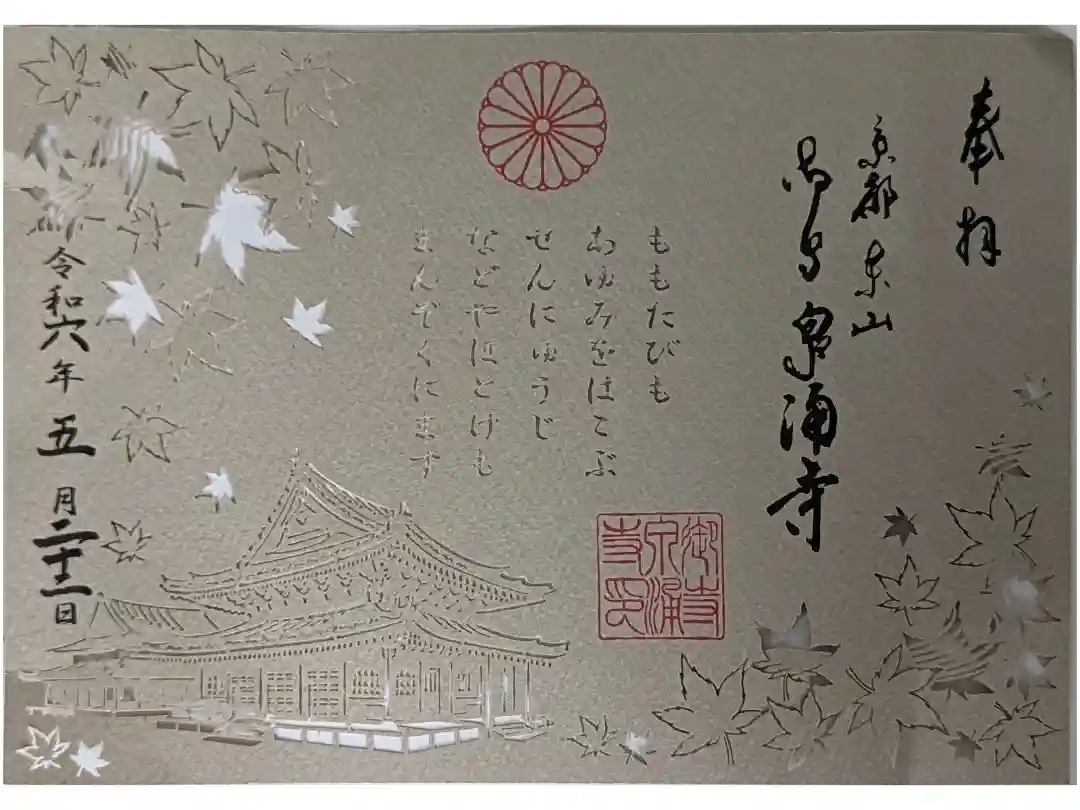 奉拝
京都東山
御寺泉涌寺
ももたびも
あゆみをはこぶ
せんにゆうじ
などやほとけも
まんぞくにます
御寺
泉涌
寺印
令和六年五月二十二日